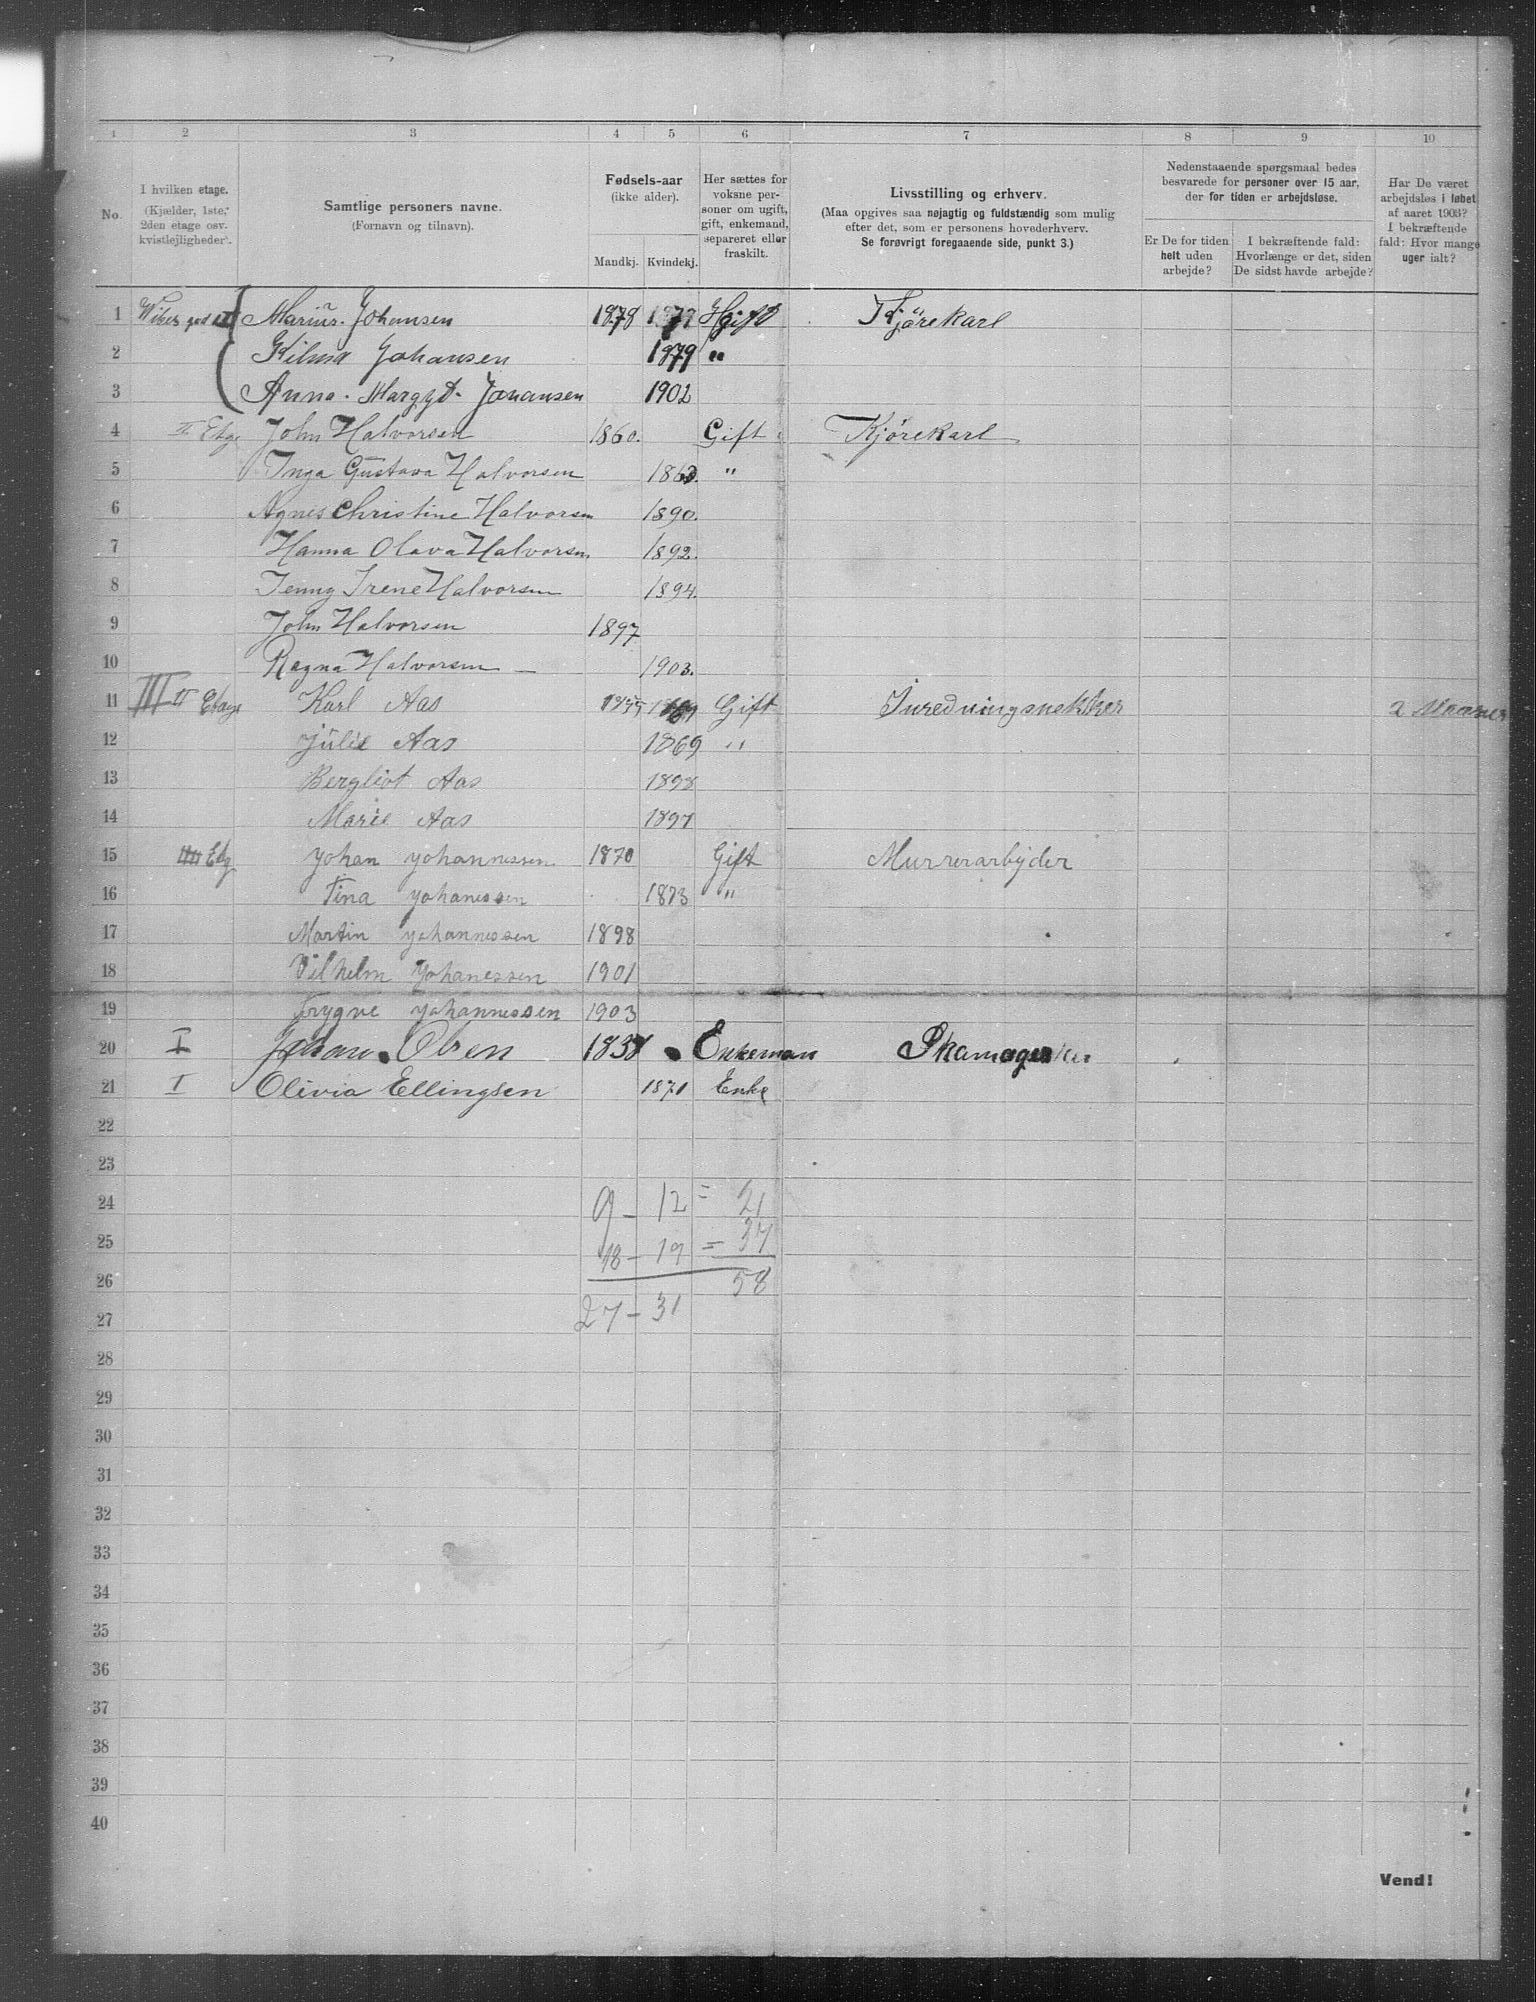 1 2 3 4 5 6 7 8 9 10
No.
I hvilken etage.
(Kjælder, 1ste,
2den etage osv.
kvistlejligheder).
Samtlige personers navne.
(Fornavn og tilnavn).
Fødsels-aar
(ikke alder).
Mandkj. Kvindekj.
Her sættes for
voksne per-
soner om ugift,
gift, enkemand,
separeret eller
fraskilt.
Livsstilling og erhverv.
(Maa opgives saa nøjagtig og fuldstændig som mulig
efter det, som er personens hovederhverv.
Se forøvrigt foregaaende side, punkt 3.)
Nedenstaaende spørgsmaal bedes
besvarede for personer over 15 aar,
der for tiden er arbejdsløse.
Er De for tiden
helt uden
arbejde?
I bekræftende fald:
Hvorlænge er det, siden
De sidst havde arbejde?
Har De været
arbejdsløs i løbet
af aaret 1903?
I bekræftende
fald: Hvor mange
uger ialt?
1 Marius Johansen 1878 Gift Kjørekarl
2 Johansen 1879 "
3 Anna Margyt Johansen 1902
4 II Etge John Halvorsen 1860. Gift Kjørekarl
5 Inga Gustava Halvorsen 1863. "
6 Agnes Christine Halvorsen 1890.
7 Hanna Olava Halvorsen 1892.
8 Jenny Irene Halvorsen 1894.
9 John Halvorsen 1897
10 Ragna Halvorsen 1903.
11 III Etage Karl Aas Gift Inredningsnekker 2 Maaner
12 Julie Aas 1869 "
13 Bergliot Aas 1898
14 Marie Aas 1897
15 Etg Johan Johannessen 1870 Gift Murrerarbyder
16 Tina Johanessen 1873 "
17 Martin Johannessen 1898
18 Vilhelm Johanessen 1901
19 Trygve Johannessen 1903
20 I Johan Olsen 1838 Enkeman Skamager
21 I Olivia Ellingsen 1871 Enke
22
23
24 9 - 12 = 21
25 18 - 19 = 37
26 58
27 27 - 31
28
29
30
31
32
33
34
35
36
37
38
39
40
Vend!